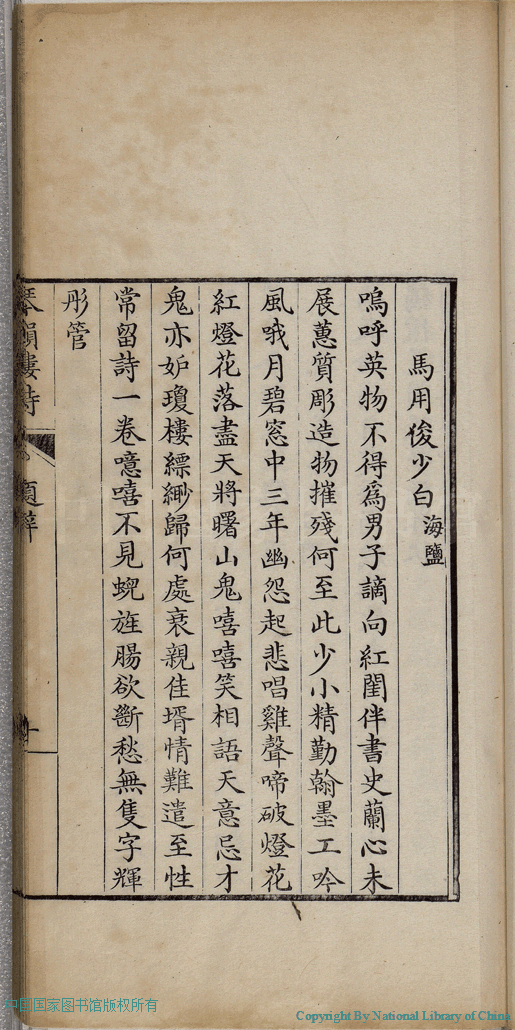 馬用俊少白海鹽
嗚呼英物不得爲男子謫向紅閨伴書史蘭心未
展蕙質彫造物摧殘何至此少小精勤翰墨工吟
風哦月碧窓中三年幽怨起悲唱雞聲啼破燈花
紅燈花落盡天將曙山鬼嘻嘻笑相語天意忌才
鬼亦妒瓊樓縹緲歸何處衰親佳壻情難遣至性
常留詩一卷噫嘻不見蜺旌腸欲斷愁無隻字輝
彤管
琴韻樓詩 題辭
中国国家图书馆版权所有
Copyright By National Library of China